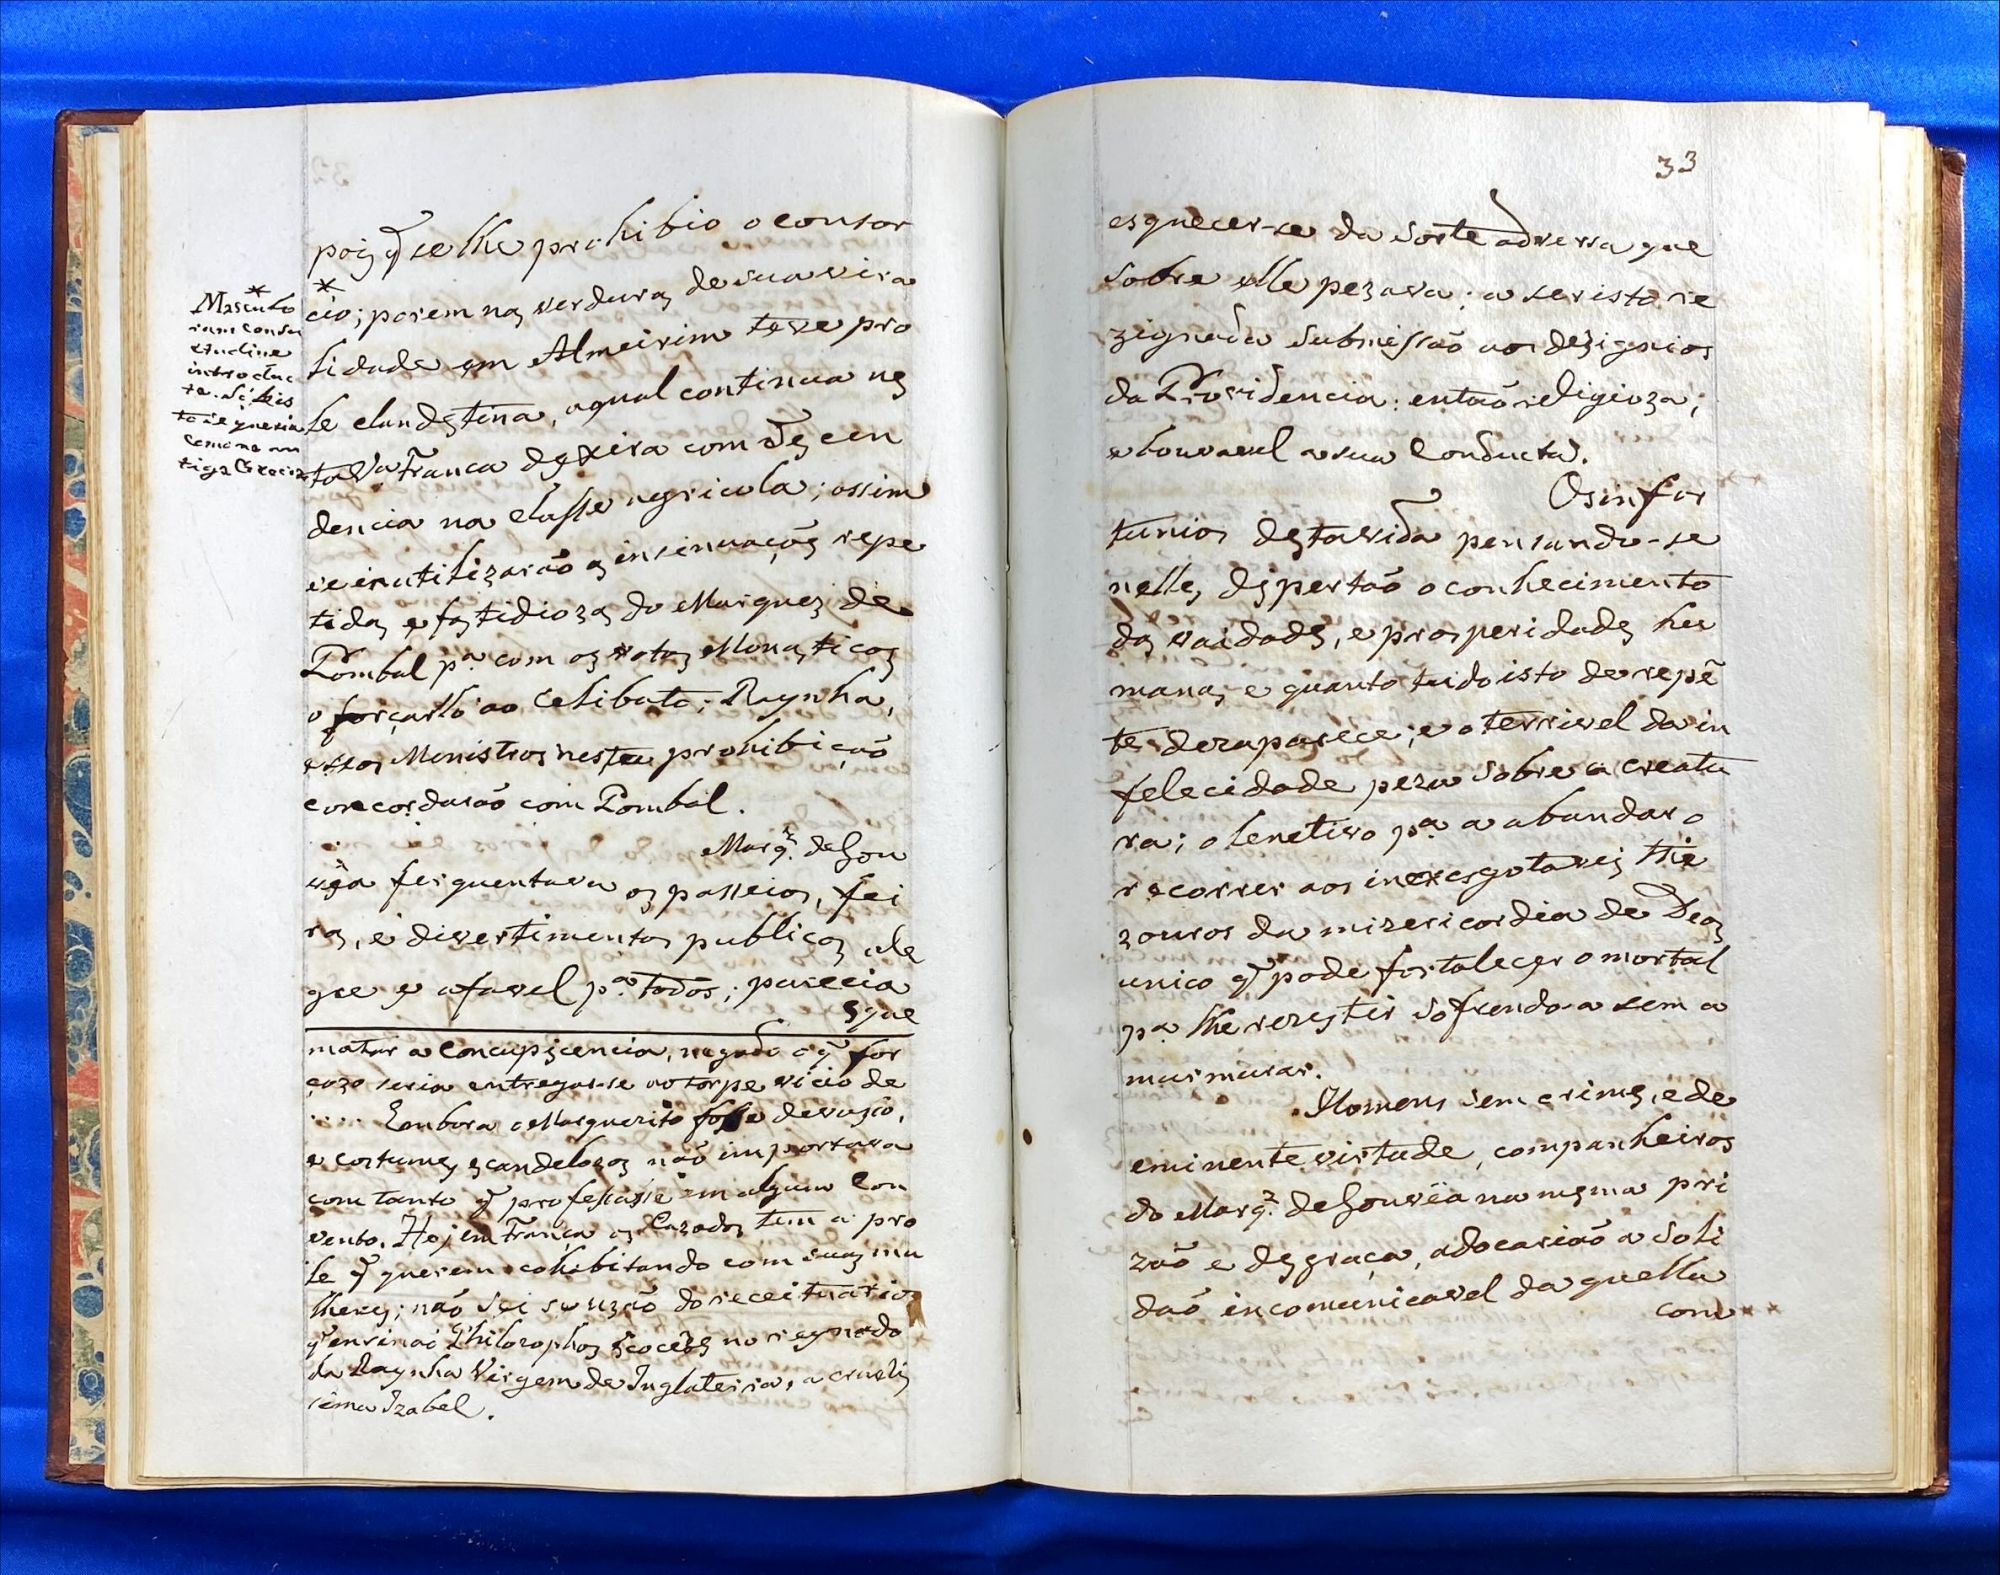 poiz q̃ se lhe prohibio o consor
cio; porem naz verduraz de sua vira
lidade em Almeirim teve pro
le clandeztina, aqual continua nez
ta Vª Franca dezxira com dez cen
dencia na classe agricola; assim
se inutilizarão az insinuaçoẽz repe
tidaz e faztidiozaz do Marquez de
Pombal pª com oz votoz Monazticoz
o forçarllo ao Celibato; Raynha,
e seos Menistros nesta prohibição
concordarão com Pombal.
Marqz. de Gou
vêa ferquentava oz passeioz, fei
raz, e divertimentos publicoz ale
gre e afavel pª todos; parecia
Sque
*
Masculo
rum consu
etudine
introduc
ta. Si his
to
como na an
tiga Grecia
matar a Concupizcencia, negado o q̃ for
çozo seria entregar-se ao torpe vicio de
.... Embora o Marquezito fosse devasço,
e costumez ezcandelozoz não importava
com tanto q̃ professasse em algum Con
vento. Hoj em França oz Cazadoz tem a pro
le q̃ querem cohibitando com suaz mu
lherez; não sei se uzão do receituario
q̃ ensinaõ Philozophoz ezcocêzez no regnado
da Raynha Virgem de Inglaterra, a crueliz
sima Izabel.
33
esquecer-se da sorte adversa que
sobre elle pezava: a ser isto re
zignada submissão aos dezignios
da Providencia: então religioza;
e louvavel a sua Conducta.
Os infor
tunios dezta vida pensando-se
nellez dezpertão o conhecimento
daz vaidadez, e prosperidadez hu
manaz e quanto tudo isto de repẽ
te dezaparece; e o terrivel da in
felecidade peza sobre a creatu
ra; o lenetivo pª a abandar o
recorrer aos inexesgotaveiz the
zouros da mizericordia de Deoz
unico q̃ pode fortalecer o mortal
pª lhe rezeztir sofrendo-a sem a
murmurar.
Homens sem crimez, e de
eminente virtude, companheiros
do Marqz. de Gouvêa na mezma pri
zão e dezgraça, adocarião a soli
dão incomunicavel da quella
com